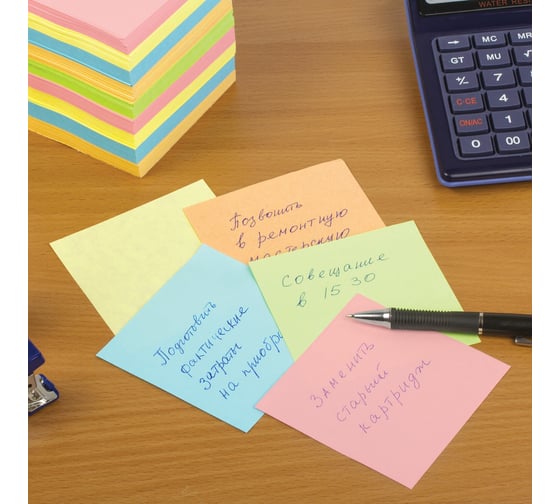 WATER RES
→ MC MR
GT MU √
+/- 7
C·CE 4
ON/AC 1
0 00
Позвонить
в ремонтную
мастерскую
Совещание
в 15 30
Подготовить
фактические
затраты
на приобр
Заменить
старый
картридж